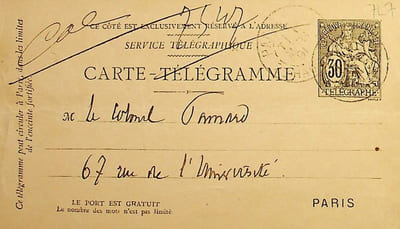 747
CE CÔTÉ EST EXCLUSIVEMENT RÉSERVÉ À L'ADRESSE
SERVICE TÉLÉGRAPHIQUE
CARTE-TÉLÉGRAMME
30
TÉLÉGRAPHE
M Le Colonel
67 rue de l'Université
LE PORT EST GRATUIT
Le nombre des mots n'est pas limité
PARIS
Ce télégramme peut circuler à Paris, dans les limites
de l'enceinte fortifiée.